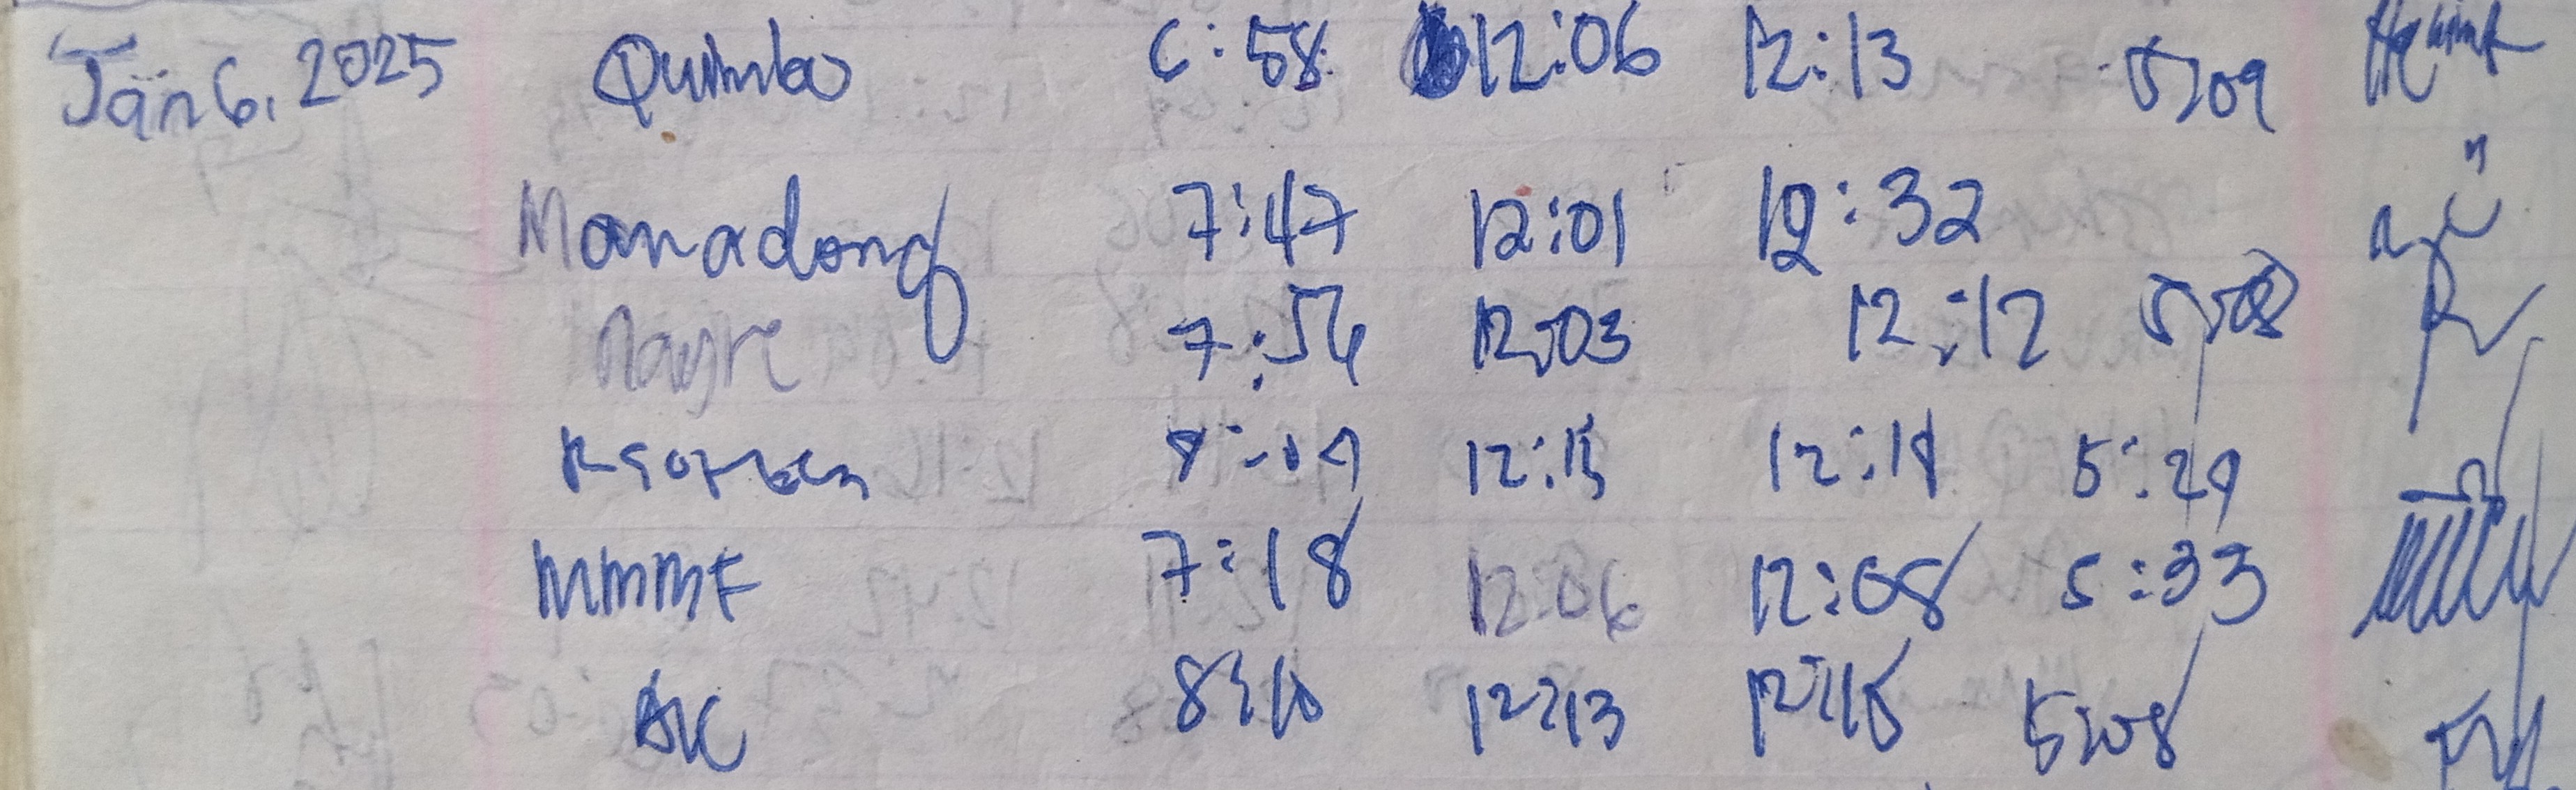 Jan 6, 2025 Quimbo 6:58 12:06 12:13 5:09
Manadong 7:47 12:01 12:32
Nayre 7:54 12:03 12:12 5:08
12:15 12:19 5:29
MMMF 7:18 12:06 12:08 5:33
8:10 12:13 12:15 5:08